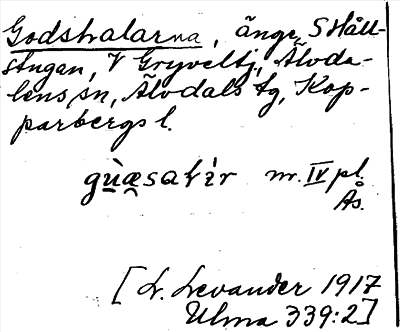 Godshalarna, änge, S Håll-
stugan, V Gryveltj, Älvda-
lens sn, Älvdals tg, Kop-
parbergs l.
gùæsaƚìr m. IV pl.
Ås.
[L. Levander 1917
Ulma 339:2]